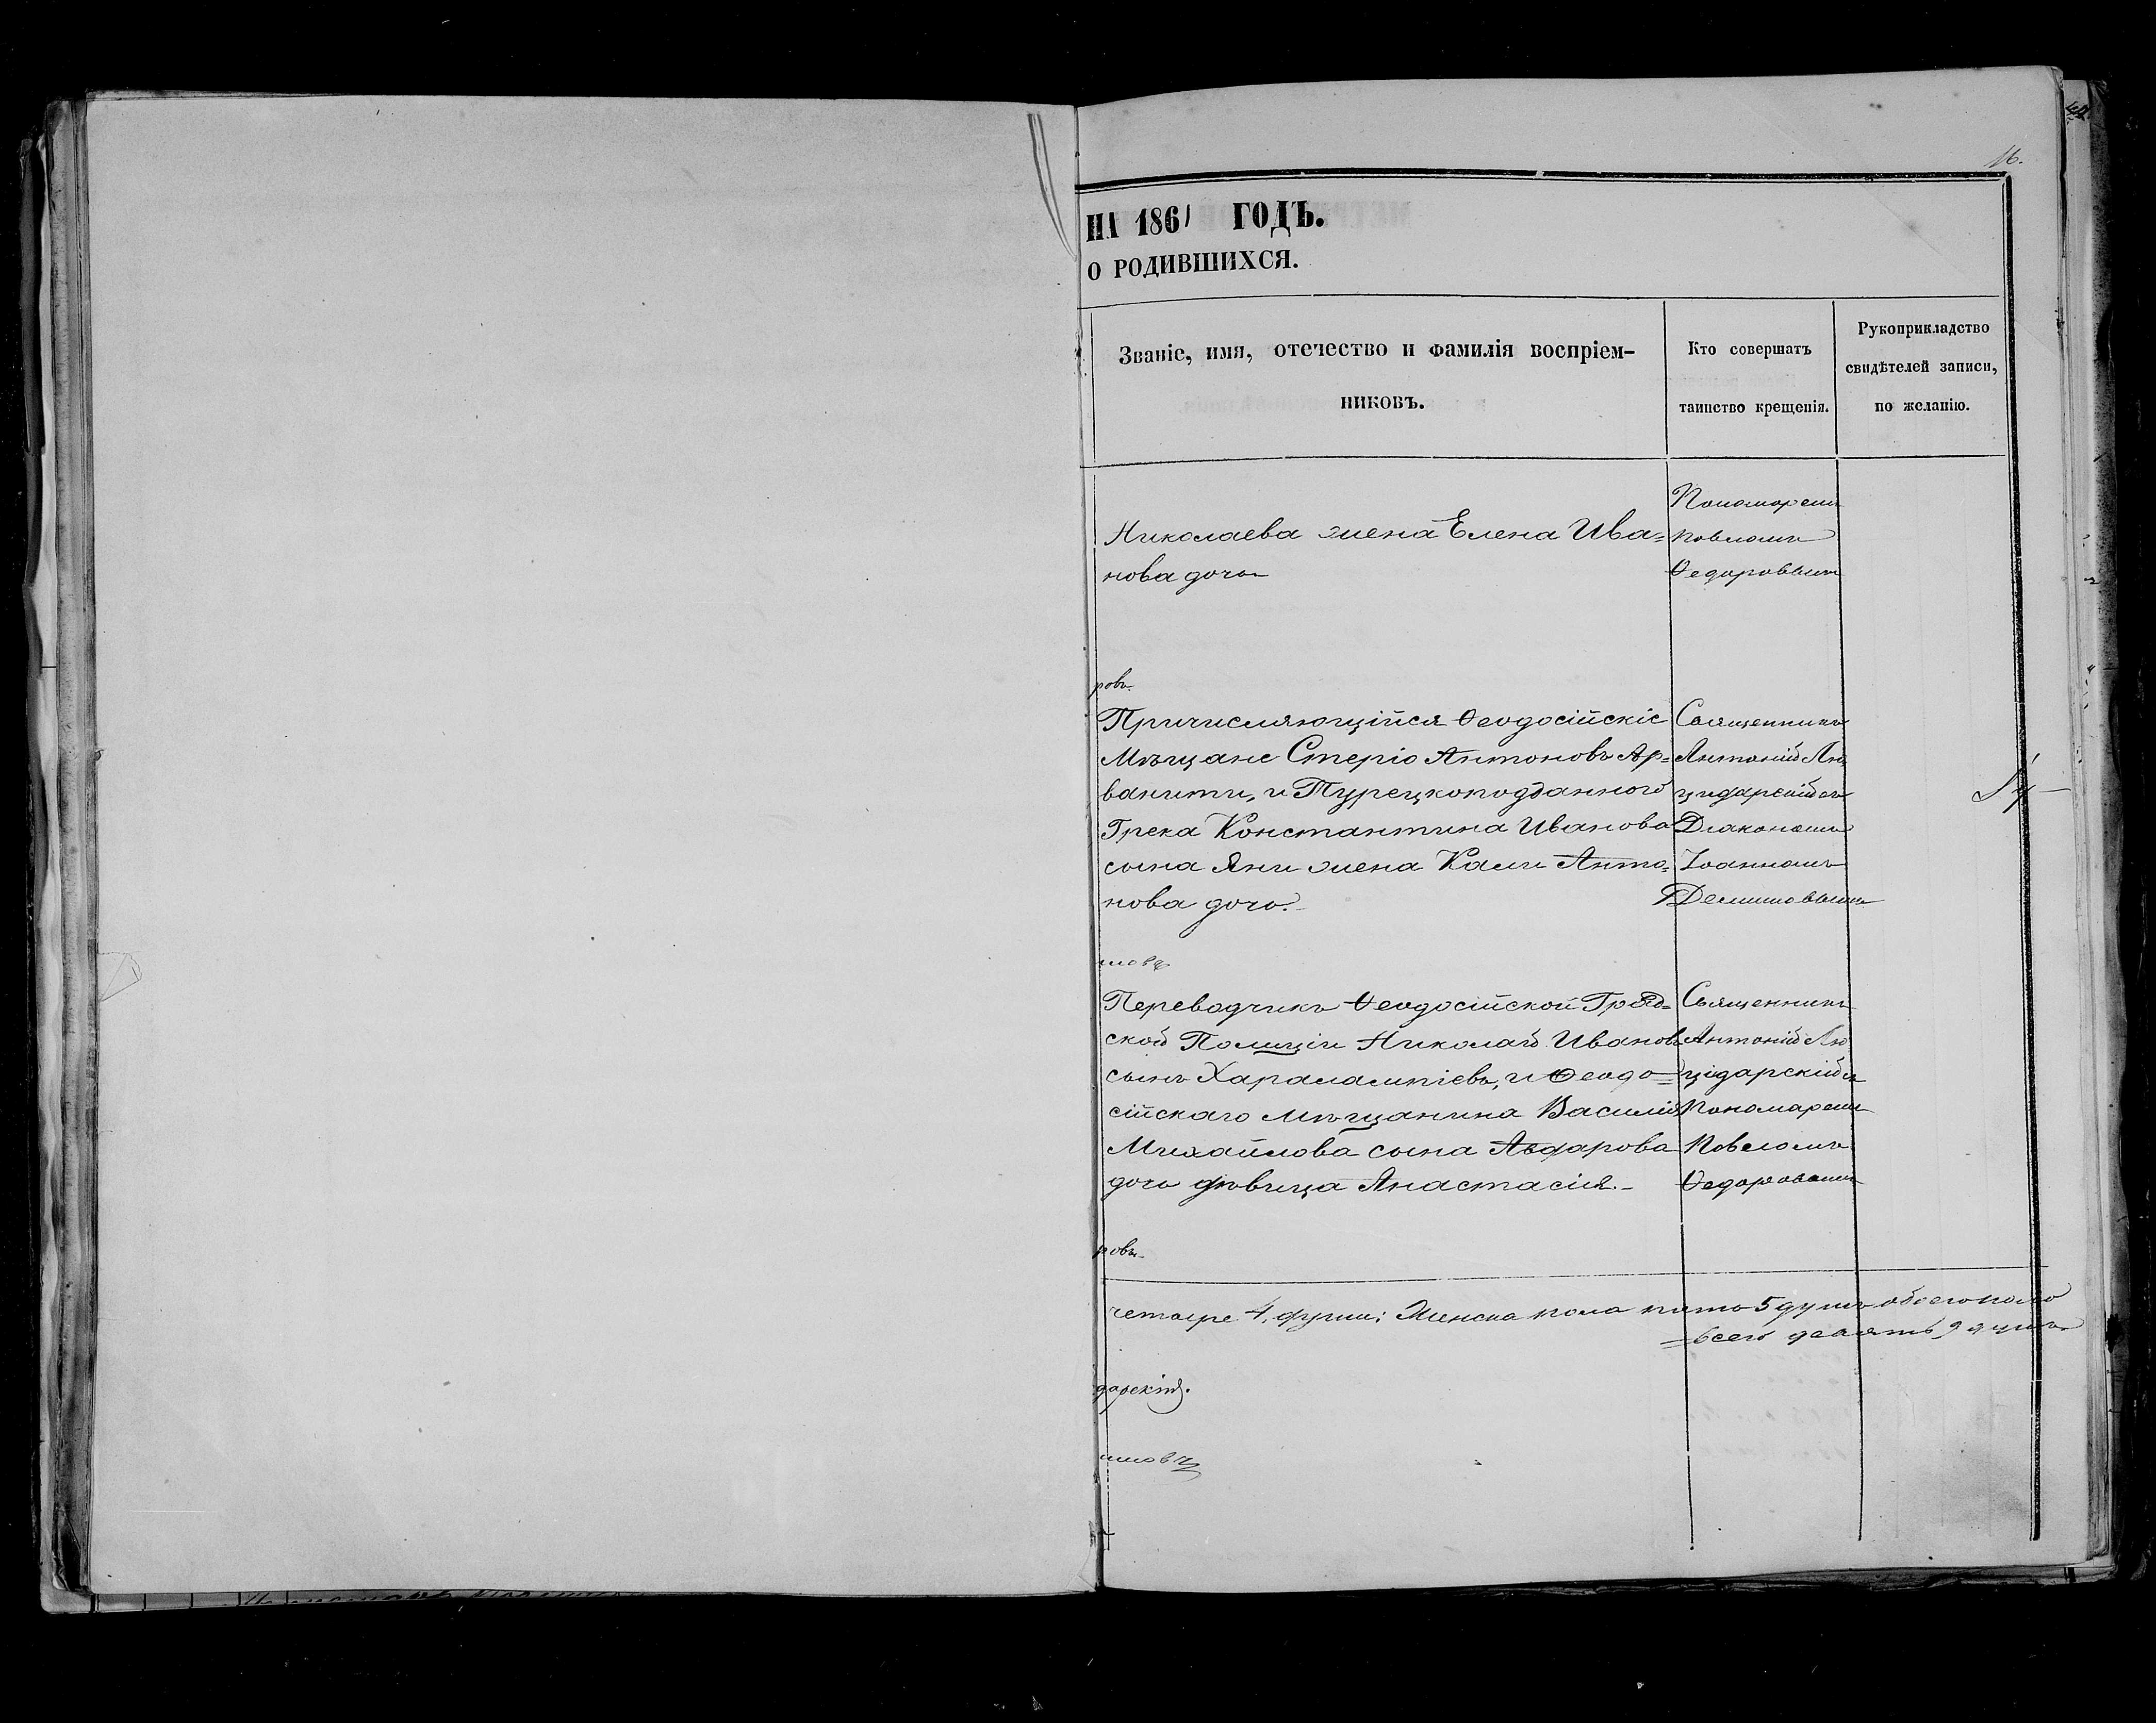 16.
НА 1861 ГОДЪ.
О РОДИВШИХСЯ.
Званіе, имя, отечество и фамилія воспріем-
никовъ.
Кто совершатъ
таинство крещенія.
Рукоприкладство
свидѣтелей записи,
по желанію.
Николаева жена Елена Ива=
нова дочь
Пономаремъ
Повломъ
Ѳедоровымъ
ровъ
Причисляющійся Ѳеодосійскіе
Мѣщане Стеріо Антоновъ Ар=
ванити, и Турецкоподданного
Грека Константина Иванова
сына Яни жена Кали Анто=
нова дочь.
Священникъ
Антоній
цидарскій съ
Діакономъ
Іоанномъ
Демишовымъ
шовъ
Переводчикъ Ѳеодосійской Град=
ской Полиціи Николай Ивановъ
сынъ Харалампіевъ, и Ѳеодо=
сійскаго мѣщанина Василія
Михайлова сына Авдарова
дочь дѣвица Анастасія.
Священникъ
Антоній
цідарскій съ
Пономаремъ
Повломъ
Ѳедоровымъ
ровъ
четыре 4. души; Женска пола пять 5 душъ обоего пола
=всего девять 9 душъ
дарскій.
шовъ